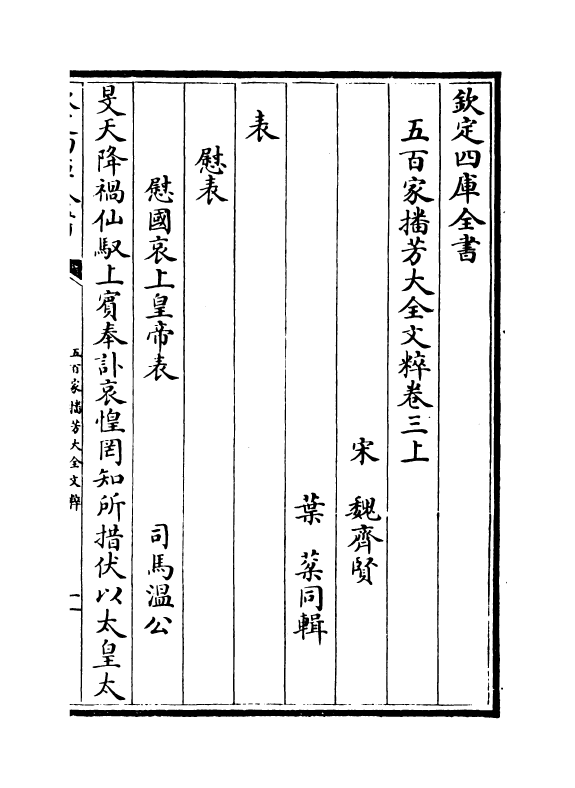 欽定四庫全書
五百家播芳大全文粹卷三上
宋 魏齊賢
葉棻同輯
表
慰表
慰國哀上皇帝表 司馬溫公
旻天降禍仙馭上賓奉訃哀惶罔知所措伏以太皇太
五百家播芳大全文粹
一